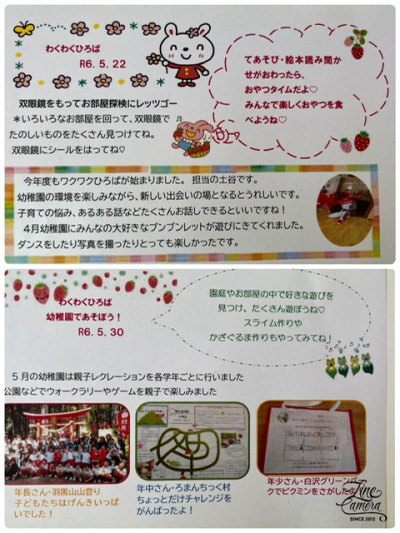 わくわくひろば
R6. 5. 22
双眼鏡をもってお部屋探検にレッツゴー
＊いろいろなお部屋を回って、双眼鏡で
たのしいものをたくさん見つけてね。
双眼鏡にシールをはってね♡
てあそび・絵本読み聞か
せがおわったら、
おやつタイムだよ♡
みんなで楽しくおやつを食
べようね♡
今年度もワクワクひろばが始まりました。 担当の土谷です。
幼稚園の環境を楽しみながら、新しい出会いの場となるとうれしいです。
子育ての悩み、あるある話などたくさんお話しできるといいですね！
4月幼稚園にみんなの大好きなブンブンレットが遊びにきてくれました。
ダンスをしたり写真を撮ったりとっても楽しかったです。
わくわくひろば
幼稚園であそぼう！
R6. 5. 30
園庭やお部屋の中で好きな遊びを
見つけ、たくさん遊ぼうね♡
スライム作りや
かざぐるま作りもやってみてね！
５月の幼稚園は親子レクレーションを各学年ごとに行いました
公園などでウオークラリーやゲームを親子で楽しみました
年長さん・羽黒山山登り
子どもたちはげんきいっぱ
いでした！
年中さん・ろまんちっく村
ちょっとだけチャレンジを
がんばったよ！
年少さん・白沢グリーンパー
クでピクミンをさがしたよ
Line
Camera
SINCE 2012